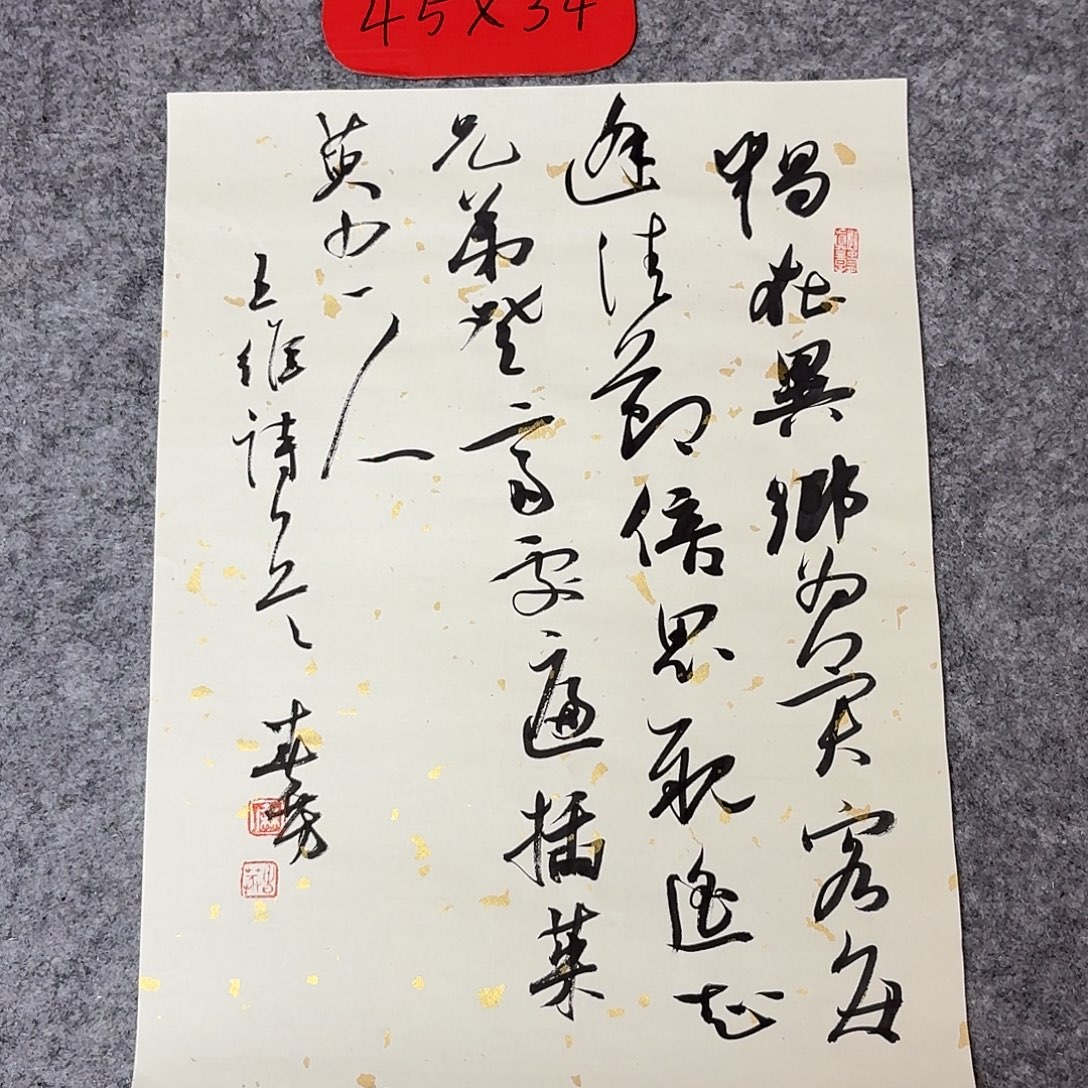 45X34
獨在異鄉為異客每
逢佳節倍思親遙知
兄弟登高處遍插茱
萸少一人
王維詩